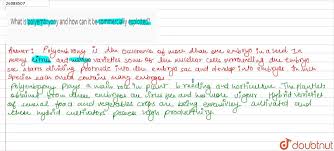 What is polyembryony and how can it be commercially exploited?
Answer: Polyembryony is the occurrence of more than one embryo in a seed. In
many citrus and mango varieties some of the nucellar cells surrounding the embryo
sac starts dividing protrude into the embryo sac and develop into embryos. In such
species each ovule contains many embryos.
Polyembryony plays a main role in plant breeding and horticulture. The plantlets
obtained from these embryos are virus free and have more vigour. Hybrid varieties
of several food and vegetable crops are being extensively cultivated and
these hybrid cultivators productivity.
doubtnut